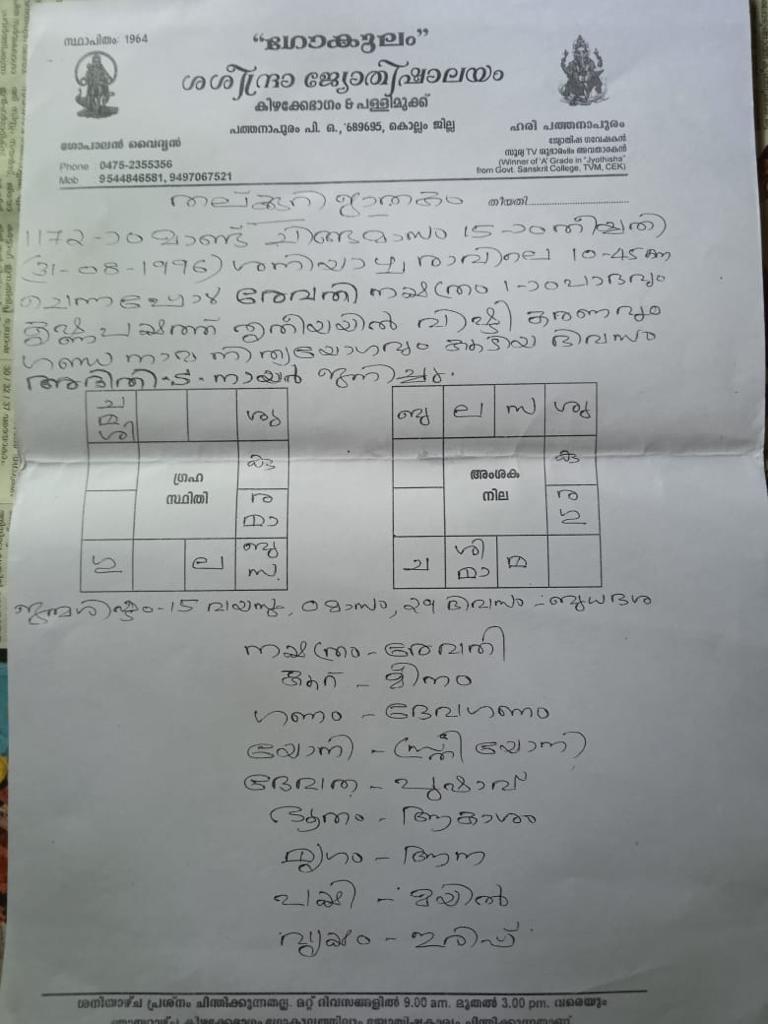 സ്ഥാപിതം: 1964
"ഗോകുലം"
ശശീന്ദ്രാ ജ്യോതിഷാലയം
കിഴക്കേഭാഗം & പള്ളിമുക്ക്
പത്തനാപുരം പി. ഒ., 689695, കൊല്ലം ജില്ല
ഗോപാലൻ വൈദ്യൻ
Phone : 0475-2355356
Mob : 9544846581, 9497067521
ഹരി പത്തനാപുരം
ജ്യോതിഷ ഗവേഷകൻ
സൂര്യ TV ശുഭാരംഭം അവതാരകൻ
(Winner of 'A' Grade in "Jyothisha"
from Govt. Sanskrit College, TVM, CEK)
തലക്കുറി ജാതകം
തീയതി
1172-ാം മാണ്ട് ചിങ്ങമാസം 15-ാം തീയതി
(31-08-1996) ശനിയാഴ്ച രാവിലെ 10-45 ന്
ചെന്നപ്പോൾ രേവതി നക്ഷത്രം 1-ാം പാദവും
കൃഷ്ണപക്ഷത്ത് തൃതീയയിൽ വിഷ്ടി കരണവും
ഗണ്ഡ നാമ നിത്യയോഗവും കൂടിയ ദിവസം
അദിതി.S.നായർ ജനിച്ചു.
ച
മ
ശി
ശു
കു
ര
മാ
ഗു
ല
ബു
സ
ഗ്രഹ
സ്ഥിതി
ബു
ല
സ
ശു
കു
ര
ഗു
ച
ശി
മാ
മ
അംശക
നില
ജന്മശിഷ്ടം-15 വയസും, 0 മാസം, 29 ദിവസം - ബുധദശ
നക്ഷത്രം - രേവതി
കൂറ് - മീനം
ഗണം - ദേവഗണം
യോനി - (സ്ത്രീ യോനി)
ദേവത - പൂഷാവ്
ഭൂതം - ആകാശം
മൃഗം - ആന
പക്ഷി - മയിൽ
വൃക്ഷം - ഇരിപ്പ്
ശനിയാഴ്ച പ്രശ്നം ചിന്തിക്കുന്നതല്ല. മറ്റ് ദിവസങ്ങളിൽ 9.00 am. മുതൽ 3.00 pm. വരെയും